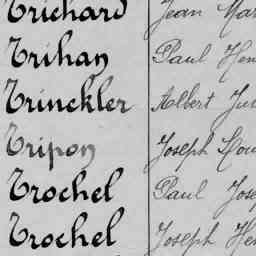 Trichard Jean Mar
Trihan Paul Hen
Trinckler Albert Jul
Tripon Joseph Lou
Trochel Paul Jose
Trochel Joseph Hen